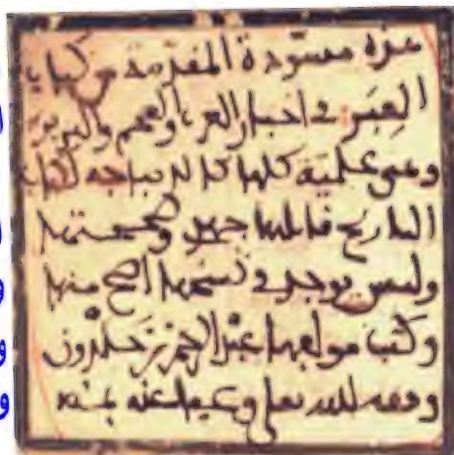 هذه مسوّدة المقدمة من كتاب
العِبَر في اخبار العرب والعجم والبربر
وهي علمية كلها كالديباجة لكتاب
التاريخ قابلتها جهدي وصححتها
وليس يوجد في نسخها اصح منها
وكتب مولفها عبد الرحمن بن خلدون
وفقه الله تعلى وعفا عنه بمنه